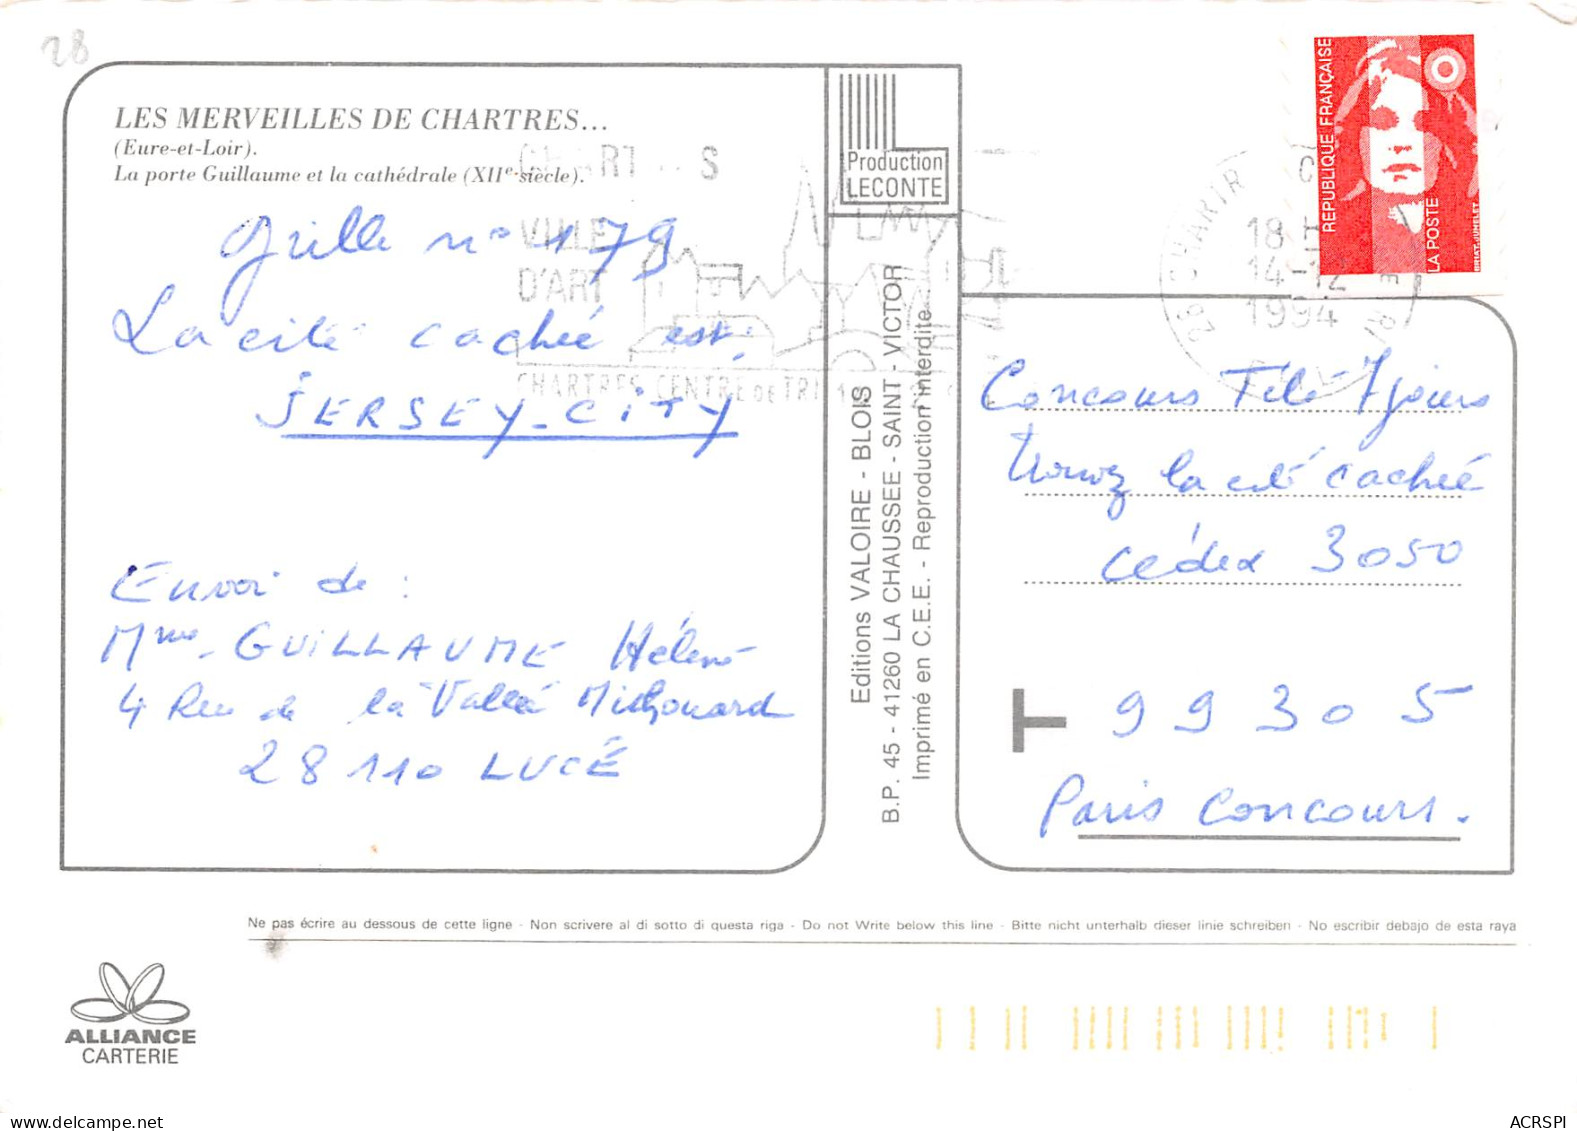 28
LES MERVEILLES DE CHARTRES...
(Eure-et-Loir).
La porte Guillaume et la cathédrale (XIIe siècle).
Grille n° 179
La cité cachée est
JERSEY-CITY
Envoi de :
Mme GUILLAUME Hélène
4 Rue de la Vallée Michouard
28110 LUCÉ
Production
LECONTE
VILLE
D'ART
CHARTRES CENTRE DE TRI
Editions VALOIRE - BLOIS
B.P. 45 - 41260 LA CHAUSSEE - SAINT - VICTOR
Imprimé en C.E.E. - Reproduction interdite
REPUBLIQUE FRANÇAISE
LA POSTE
BRIAT-JUMELET
28 CHARTR
18 H
14-12
1994
Concours Télé 7 jours
Trouvez la cité cachée
Cédex 3050
T 99305
Paris Concours.
Ne pas écrire au dessous de cette ligne - Non scrivere al di sotto di questa riga - Do not Write below this line - Bitte nicht unterhalb dieser linie schreiben - No escribir debajo de esta raya
ALLIANCE
CARTERIE
www.delcampe.net
ACRSPI